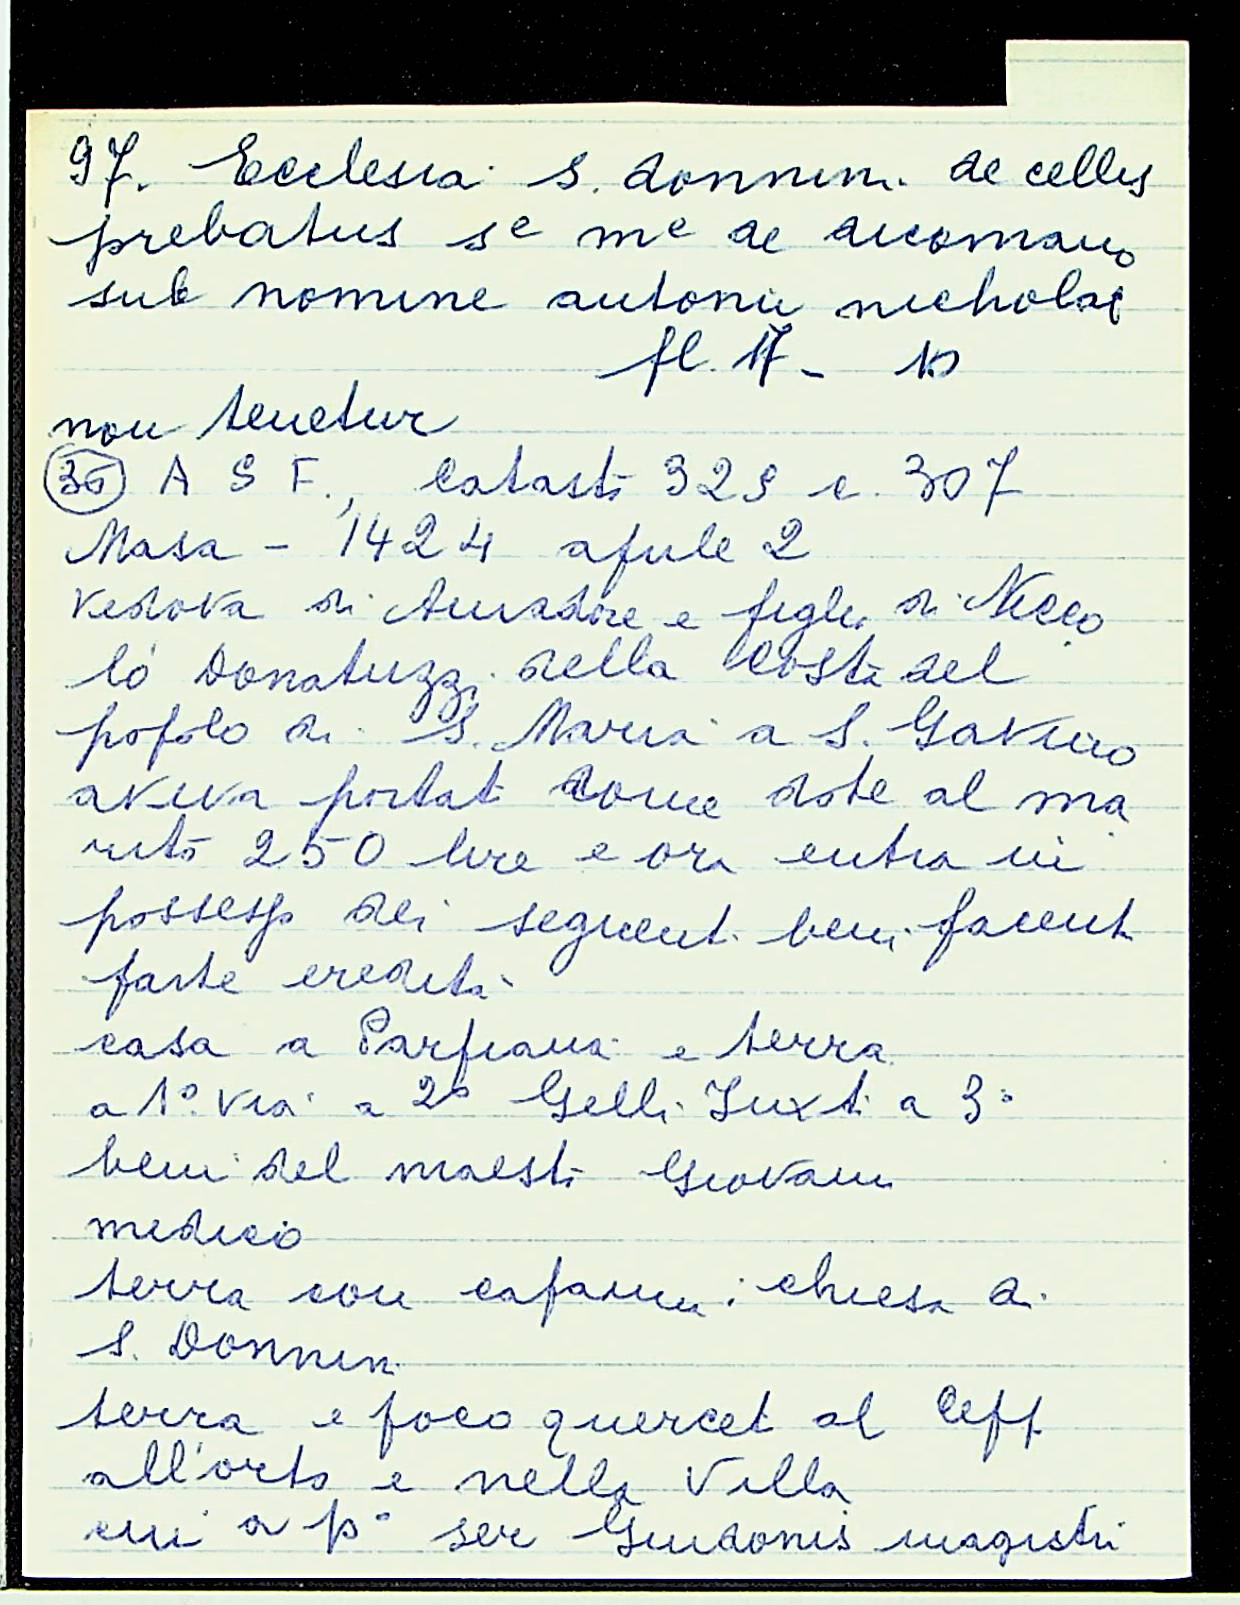 97. Ecclesia S. donnini de cellis
prebatus se me de dicomano
sub nomine antonii nicholai
fl. 17 - 10
non tenetur
36 A S F., Catasto 329 c. 307
Masa - 1424 aprile 2
vedova di Amadore e figlia di Nicco
lò Donatuzzi della Costa del
popolo di S. Maria a S. Gavino
aveva portato come dote al ma
rito 250 lire e ora entra in
possesso dei seguenti beni facenti
parte eredità
casa a Parfiana e terra
a 1° via a 2° Gelli Juxti a 3°
beni del maestro Giovanni
medico
terra con capanna: chiesa a
S. Donnino
terra e poco querceto al Ceppo
all'orto e nella Villa
cui a p° ser Guidonis magistri